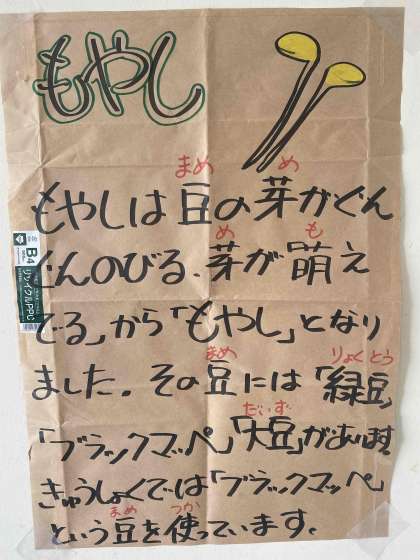 もやし
もやしは豆の芽がぐん
ぐんのびる、芽が萌え
でる」から「もやし」となり
ました。その豆には「緑豆」
「ブラックマッペ」「大豆」があります。
きゅうしょくでは「ブラックマッペ」
という豆を使っています。
まめ め
め も
まめ りょくとう
だいず
まめ つか
B4
リサイクルPPC